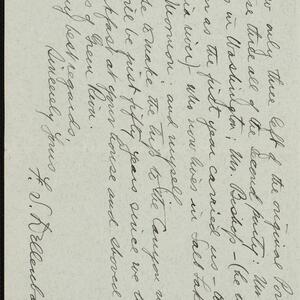 only three left of the original Po
include all of the Second party: Mr
in Washington; Mr. Bishop – (he
as the first year carried us –
river) who now lives in Salt La
and myself.
to make the trip to the Canyon
be just fifty years since we
breakfast at your house and shoved
of Green River.
best regards
Sincerely Yours
F. S. Dellenba